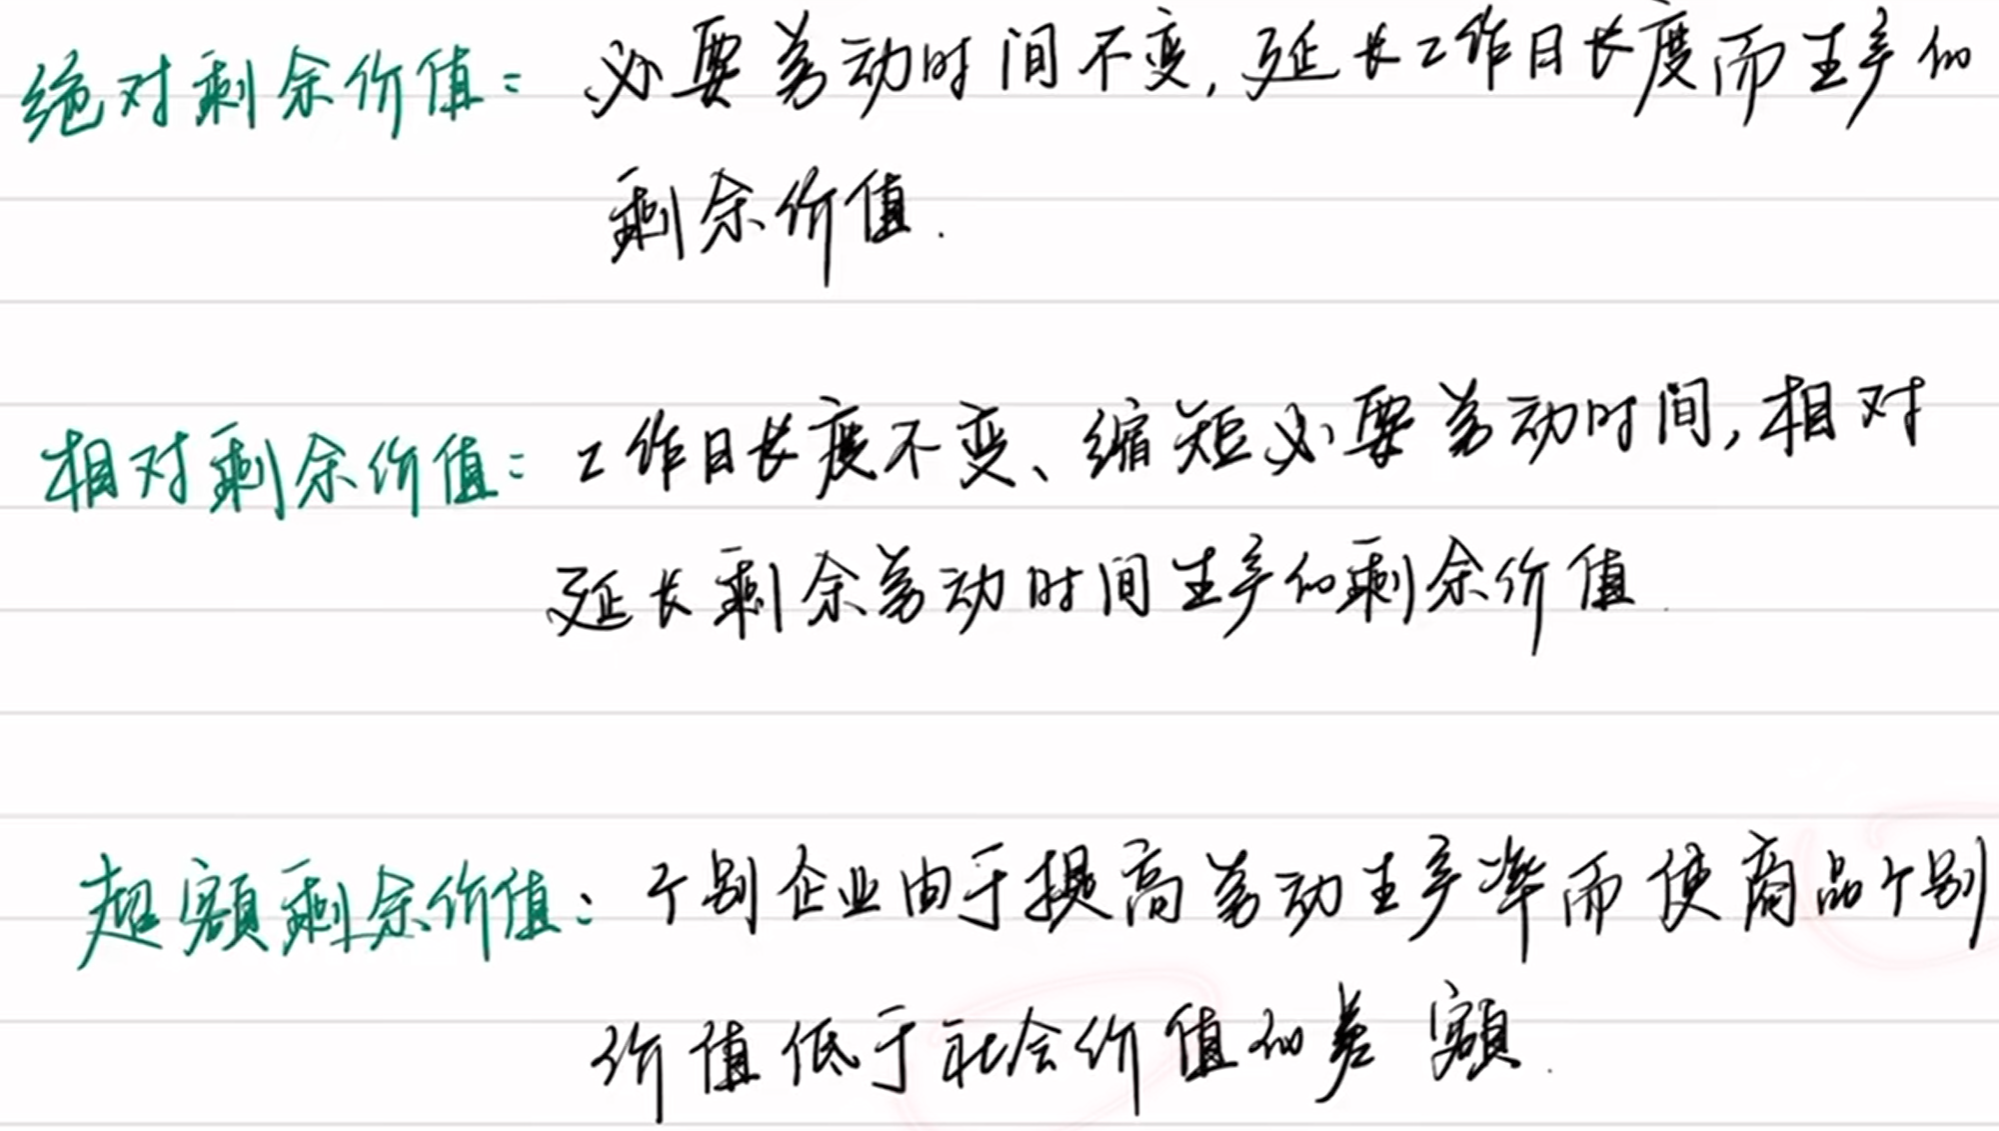 绝对剩余价值：必要劳动时间不变，延长工作日长度而生产的
剩余价值.
相对剩余价值：工作日长度不变、缩短必要劳动时间，相对
延长剩余劳动时间生产的剩余价值.
超额剩余价值：个别企业由于提高劳动生产率而使商品个别
价值低于社会价值的差额.